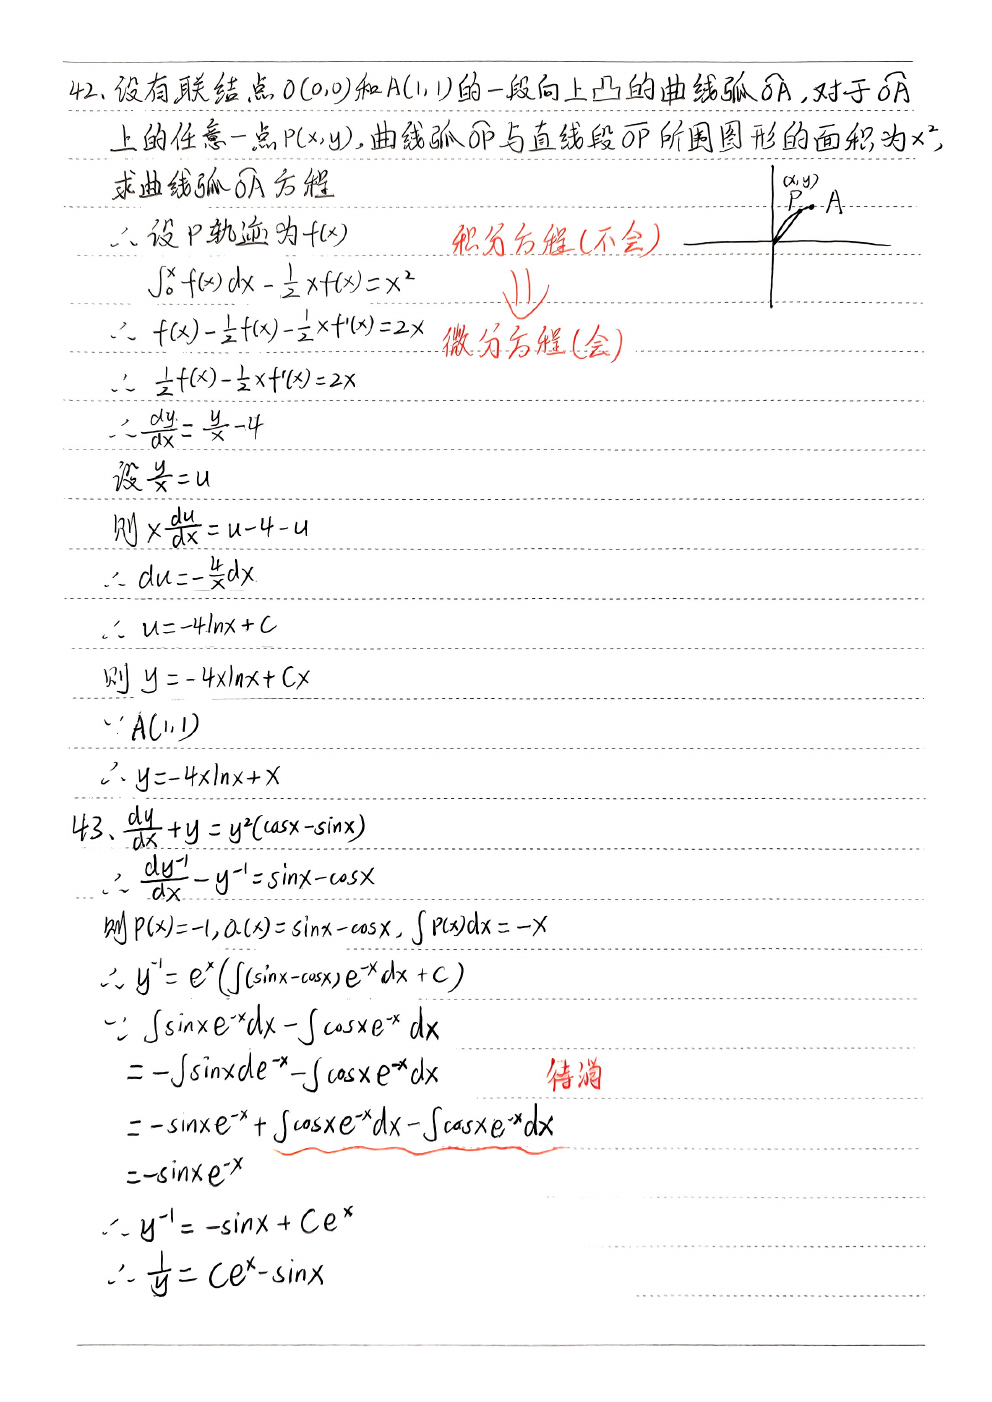 42、设有联结点O(0,0)和A(1,1)的一段向上凸的曲线弧OA,对于OA
上的任意一点P(x,y),曲线弧OP与直线段OP所围图形的面积为x²,
求曲线弧OA方程
(x,y)
P A
∴设P轨迹为f(x)
积分方程(不会)
∫₀ˣ f(x)dx - 1/2 xf(x) = x²
⇓
∴ f(x) - 1/2 f(x) - 1/2 xf'(x) = 2x
微分方程(会)
∴ 1/2 f(x) - 1/2 xf'(x) = 2x
∴ dy/dx = y/x - 4
设 y/x = u
则 x du/dx = u-4-u
∴ du = -4/x dx
∴ u = -4lnx + C
则 y = -4xlnx + Cx
∵ A(1,1)
∴ y = -4xlnx + x
43、dy/dx + y = y²(cosx-sinx)
∴ dy⁻¹/dx - y⁻¹ = sinx-cosx
则P(x)=-1, Q(x)=sinx-cosx, ∫P(x)dx=-x
∴ y⁻¹ = eˣ(∫(sinx-cosx)e⁻ˣdx + C)
∵ ∫sinxe⁻ˣdx - ∫cosxe⁻ˣdx
= -∫sinxde⁻ˣ - ∫cosxe⁻ˣdx
待消
= -sinxe⁻ˣ + ∫cosxe⁻ˣdx - ∫cosxe⁻ˣdx
= -sinxe⁻ˣ
∴ y⁻¹ = -sinx + Ceˣ
∴ 1/y = Ceˣ-sinx